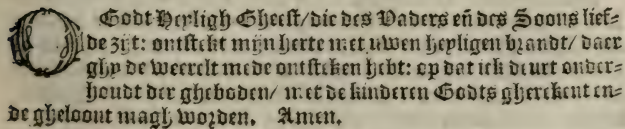 O Godt Heyligh Gheest/die des Vaders eñ des Soons lief-
de zijt: ontsteckt mijn herte met uwen heyligen brandt/ daer
ghy de weerelt mede ontsteken hebt: op dat ick deurt onder-
houdt der gheboden/ met de kinderen Godts gherekent en-
de gheloont magh worden. Amen.